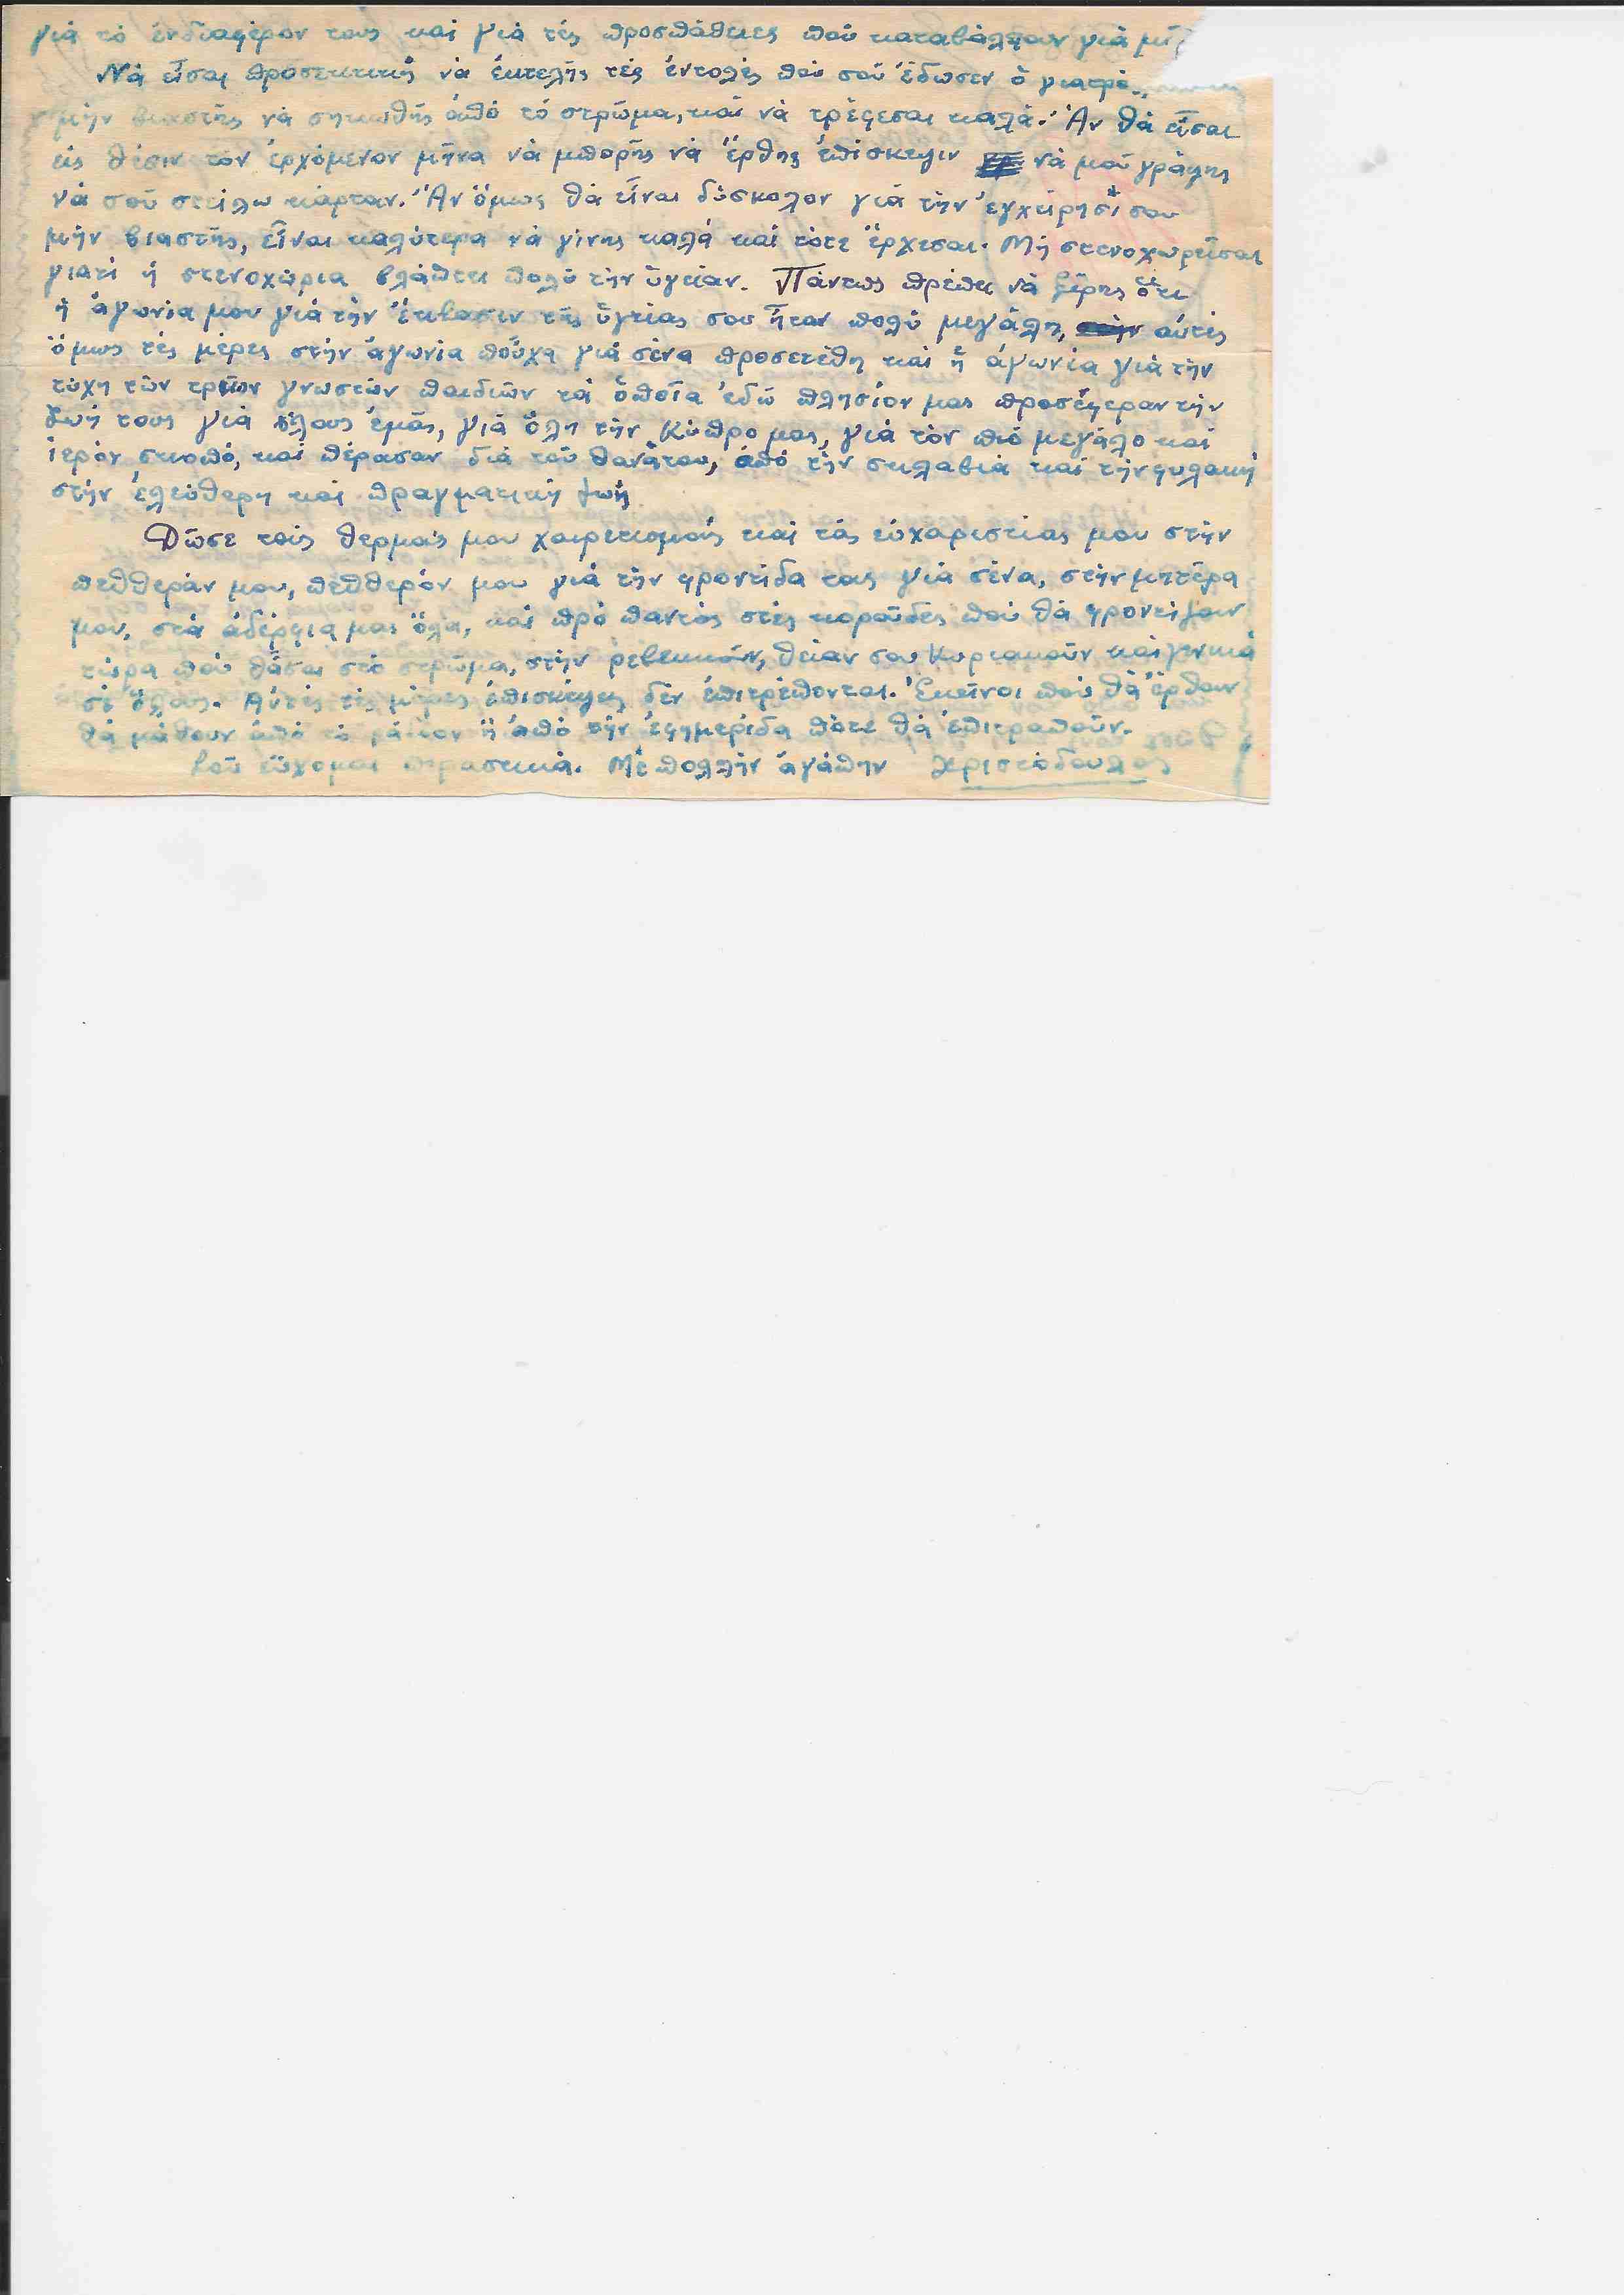 γιά τό ἐνδιαφέρον τους καί γιά τές προσπάθειες πού καταβάλλουν γιά
Νά εἶσαι προσεκτική νά ἐκτελῆς τές ἐντολές πού σοῦ ἔδωσεν ὁ γιατρό
μήν βιαστῆς νά σηκωθῆς ἀπό τό στρῶμα, καί νά τρέφεσαι καλά. Ἄν θά εἶσαι
εἰς θέσιν τόν ἐρχόμενον μῆνα νά μπορῆς νά ἔρθης ἐπίσκεψιν νά μοῦ γράψης
νά σοῦ στείλω κάρταν. Ἄν ὅμως θά εἶναι δύσκολον γιά τήν ἐγχείρησί σου
μήν βιαστῆς, εἶναι καλύτερα νά γίνης καλά καί τότε ἔρχεσαι. Μή στενοχωρεῖσαι
γιατί ἡ στενοχώρια βλάπτει πολύ τήν ὑγείαν. Πάντως πρέπει νά ξέρης ὅτι
ἡ ἀγωνία μου γιά τήν ἔκβασιν τῆς ὑγείας σου ἦταν πολύ μεγάλη, αὐτές
ὅμως τές μέρες στήν ἀγωνία ποὖχα γιά σένα προσετέθη καί ἡ ἀγωνία γιά τήν
τύχη τῶν τριῶν γνωστῶν παιδιῶν τά ὁποῖα ἐδῶ πλησίον μας προσέφεραν τήν
ζωή τους γιά ὅλους ἐμᾶς, γιά ὅλη τήν Κύπρο μας, γιά τόν πιό μεγάλο καί
ἱερόν σκοπό, καί πέρασαν διά τοῦ θανάτου, ἀπό τήν σκλαβιά καί τήν φυλακή
στήν ἐλεύθερη καί πραγματική ζωή
Δῶσε τούς θερμούς μου χαιρετισμούς καί τάς εὐχαριστίας μου στήν
πεθθεράν μου, πεθθερόν μου γιά τήν φροντίδα τους γιά σένα, στήν μητέρα
μου, στά ἀδέρφια μας ὅλα, καί πρό παντός στές κοροῦδες πού θά φροντίζουν
τώρα πού θἆσαι στό στρῶμα, στήν ρεβεκκοῦν, θείαν σου Κυριακοῦν καί γενικά
σέ ὅλους. Αὐτές τές μέρες ἐπισκέψεις δέν ἐπιτρέπονται. Ἐκεῖνοι πού θά ἔρθουν
θά μάθουν ἀπό τό ράδιον ἤ ἀπό τήν ἐφημερίδα πότε θά ἐπιτραποῦν.
Σοῦ εὔχομαι περαστικά. Μέ πολλήν ἀγάπην Χριστόδουλος